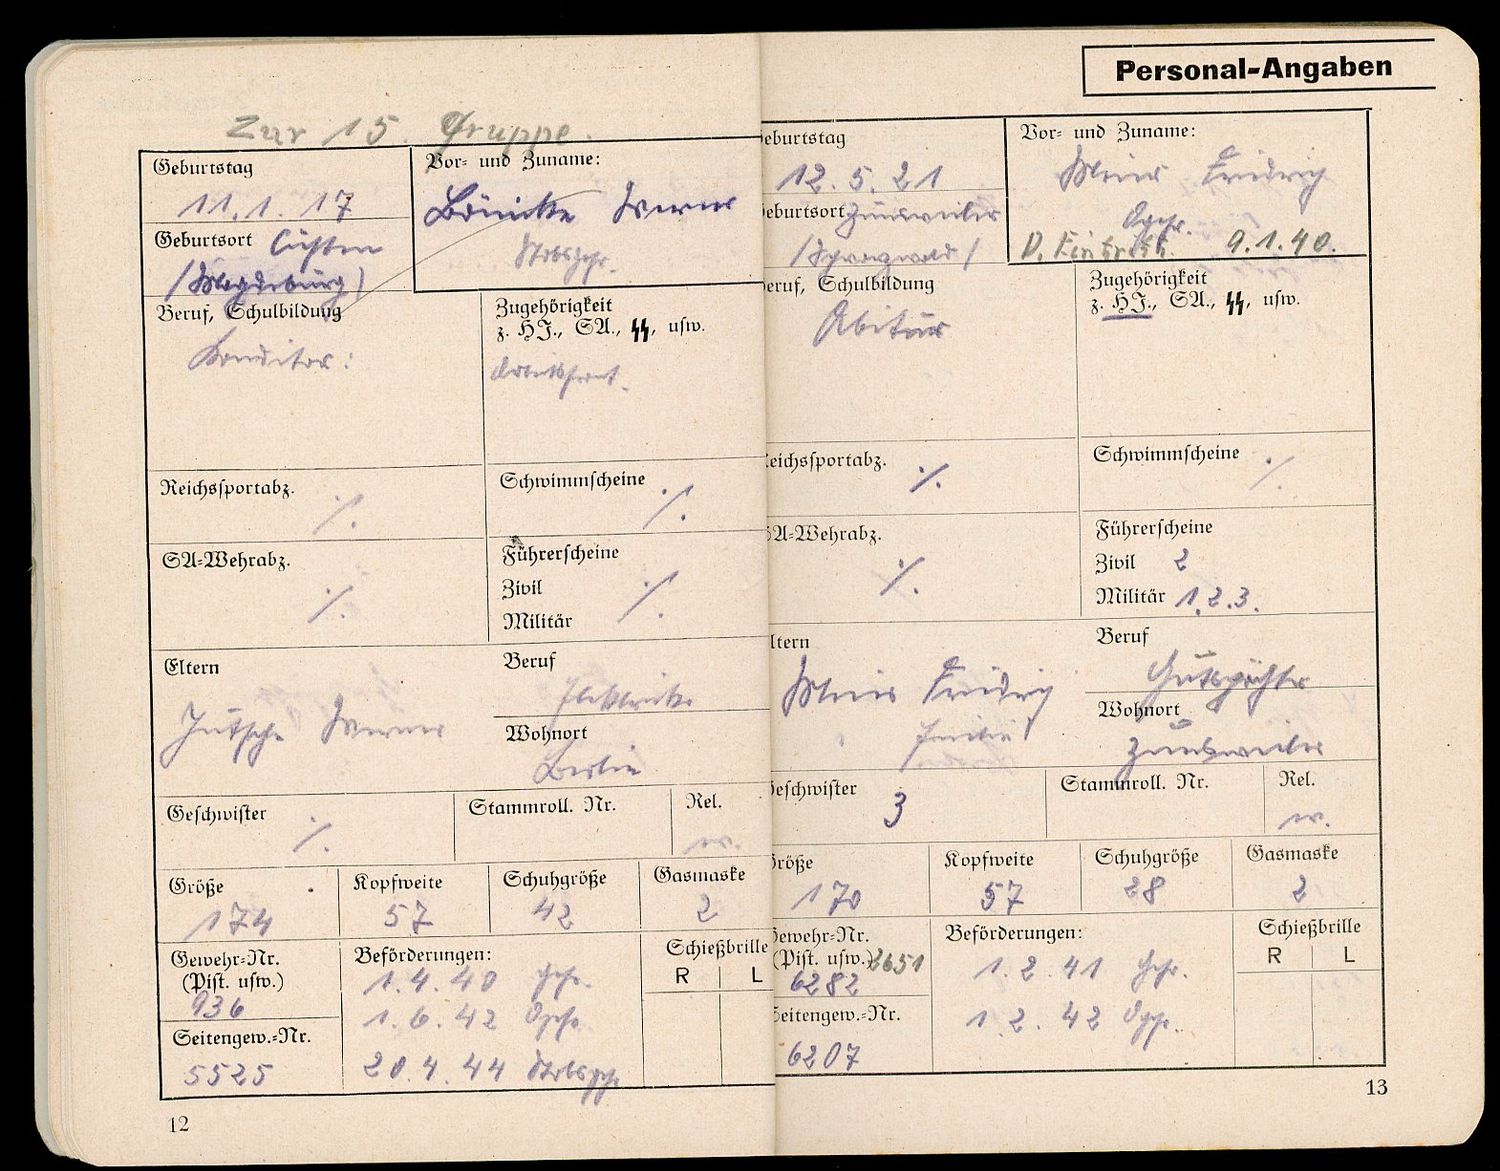 Zur 15. Gruppe.
Geburtstag
11. 1. 17
Vor- und Zuname:
Werner
Stbsgefr.
Geburtsort
(Magdeburg)
Beruf, Schulbildung
Konditor:
Zugehörigkeit
z. HJ., SA., SS, usw.
Arbeitsfront.
Reichssportabz.
·/.
Schwimmscheine
·/.
SA-Wehrabz.
·/.
Führerscheine
Zivil
Militär
·/.
Eltern
Werner
Beruf
Wohnort
Berlin
Geschwister
·/.
Stammroll. Nr.
Rel.
Größe
174
Kopfweite
57
Schuhgröße
42
Gasmaske
2
Gewehr-Nr.
(Pist. usw.)
936
Seitengew.-Nr.
5525
Beförderungen:
1. 4. 40 Gefr.
1. 6. 42 Ogefr.
20. 4. 44 Stbsgefr.
Schießbrille
R L
12
Personal-Angaben
Geburtstag
12. 5. 21
Vor- und Zuname:
Friedrich
Ogefr.
D. Eintritt. 9.1.40.
Geburtsort Zunsweiler
(Schwarzwald)
Beruf, Schulbildung
Abitur
Zugehörigkeit
z. HJ., SA., SS, usw.
Reichssportabz.
·/.
Schwimmscheine
·/.
SA-Wehrabz.
·/.
Führerscheine
Zivil 2
Militär 1.2.3.
Eltern
Friedrich
Beruf
Gutspächter
Wohnort
Zunsweiler
Geschwister 3
Stammroll. Nr.
Rel.
Größe
170
Kopfweite
57
Schuhgröße
28
Gasmaske
2
Gewehr-Nr.
(Pist. usw.) 2651
6282
Seitengew.-Nr.
6207
Beförderungen:
1. 2. 41 Gefr.
1. 2. 42 Ogefr.
Schießbrille
R L
13